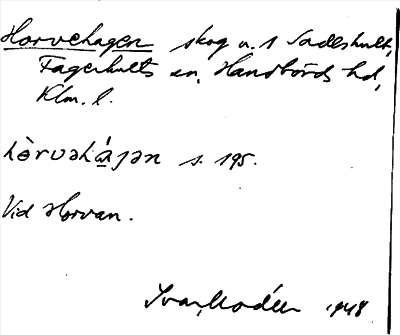 Horvehagen skog u. 1 Sadeshult,
Fagerhults sn, Handbörds hd,
Klm. l.
hòrvəhá̤ɟən s. 195.
Vid Horvan.
Ivar Modéer 1948